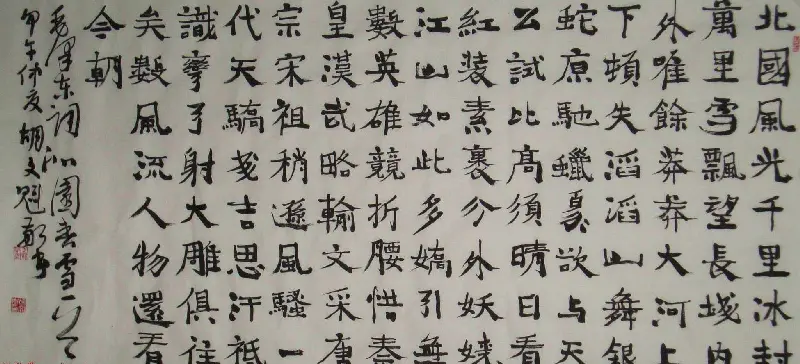 北國風光千里冰封
萬里雪飄望長城内
外唯餘莽莽大河上
下頓失滔滔山舞銀
蛇原馳蠟象欲与天
公試比高須晴日看
紅装素裹分外妖嬈
江山如此多嬌引無
數英雄競折腰惜秦
皇漢武略輸文采唐
宗宋祖稍遜風騷一
代天驕成吉思汗祗
識彎弓射大雕俱往
矣數風流人物還看
今朝
毛澤东詞沁園春雪
甲午仲夏胡文魁